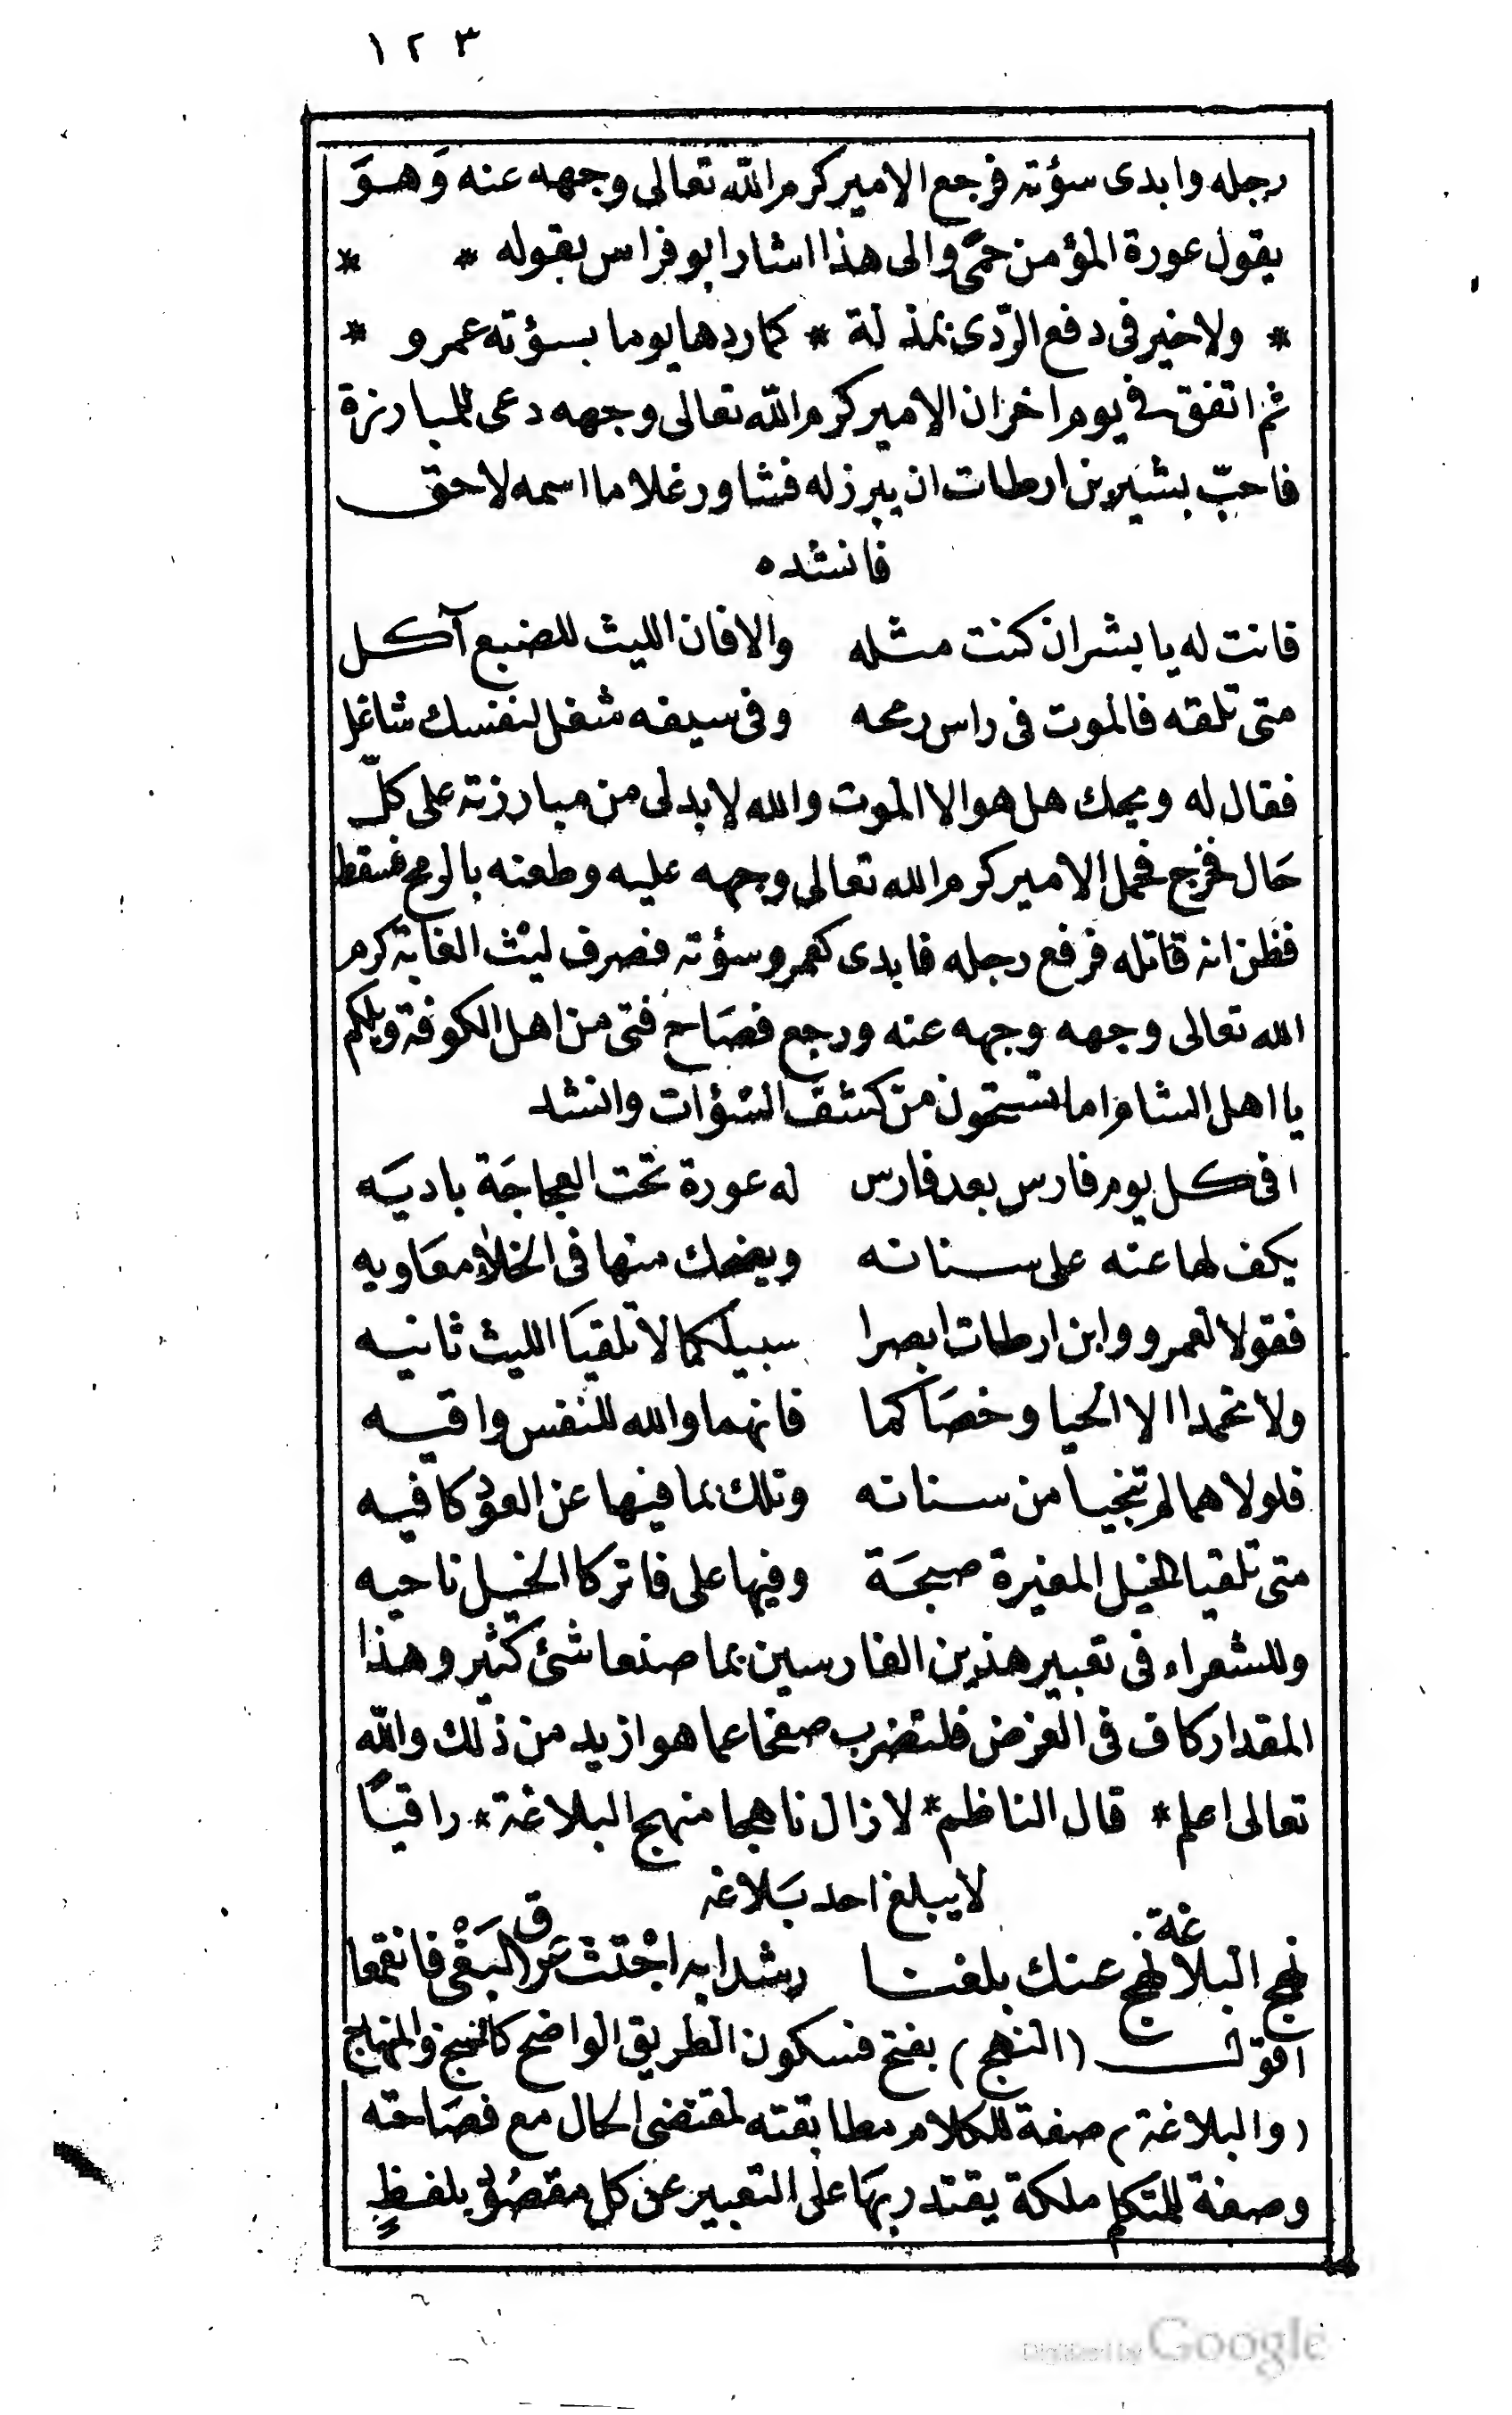 ١٢٣
رجله وابدى سؤته فرجع الامير كرم الله تعالى وجهه عنه وَهوَ
يقول عورة المؤمن حمًى والى هذا اشار ابو فراس بقوله * *
* ولا خير فى دفع الرّدى بمذلة * كما ردها يوما بسؤته عمرو *
ثم اتفق فى يوم اخر ان الامير كرم الله تعالى وجهه دعى للمبارزة
فاحبّ بشير بن ارطات ان يبرز له فشاور غلاما اسمه لاحق
فانشده
فانت له يا بشر ان كنت مثله والا فان الليث للضبع آكل
متى تلقه فالموت فى راس رمحه وفى سيفه شغل لنفسك شاغل
فقال له ويحك هل هو الا الموت والله لا بد لى من مبارزته على كلّ
حَال فخرج فحمل الامير كرم الله تعالى وجهه عليه وطعنه بالرمح فسقط
فظن انه قاتله فرفع رجله فابدى كعمرو سؤته فصرف ليث الغابة كرم
الله تعالى وجهه وجهه عنه ورجع فصَاح فتى من اهل الكوفة ويلكم
يا اهل الشام اما تستحون من كشف السؤات وانشد
افى كل يوم فارس بعد فارس له عورة تحت العجاجَة باديَه
يكف لها عنه على سنانه ويضحك منها فى الخلاء معَاويه
فقولا لعمرو وابن ارطات ابصرا سبيلكما لا تلقيَا الليث ثانيه
ولا تحمدا الا الحيا وخصَاكما فانهما والله للنفس واقيه
فلولا هما لم تنجيا من سنانه وتلك بما فيها عن العود كافيه
متى تلقيا الخيل المغيرة صبحَة وفيها على فاتركا الخيل ناحيه
وللشعراء فى تعبير هذين الفارسين بما صنعا شئ كثير وهذا
المقدار كاف فى الغرض فلنضرب صفحا عما هو ازيد من ذلك والله
تعالى اعلم * قال الناظم * لا زال ناهجا منهج البلاغة * راقيًا
لا يبلغ احد بَلاغه
نهج البلاغة نهج عنك بلغنا رشدا به اجْتث عَرق البَغْى فانقمعا
اقول (النهج) بفتح فسكون الطريق الواضح كالمنهج والمنهاج
(والبلاغة) صفة للكلام مطابقته لمقتضى الحال مع فصَاحته
وصفة للمتكلم ملكة يقتدر بهَا على التعبير عن كل مقصُود بلفظٍ
Digitized by Google